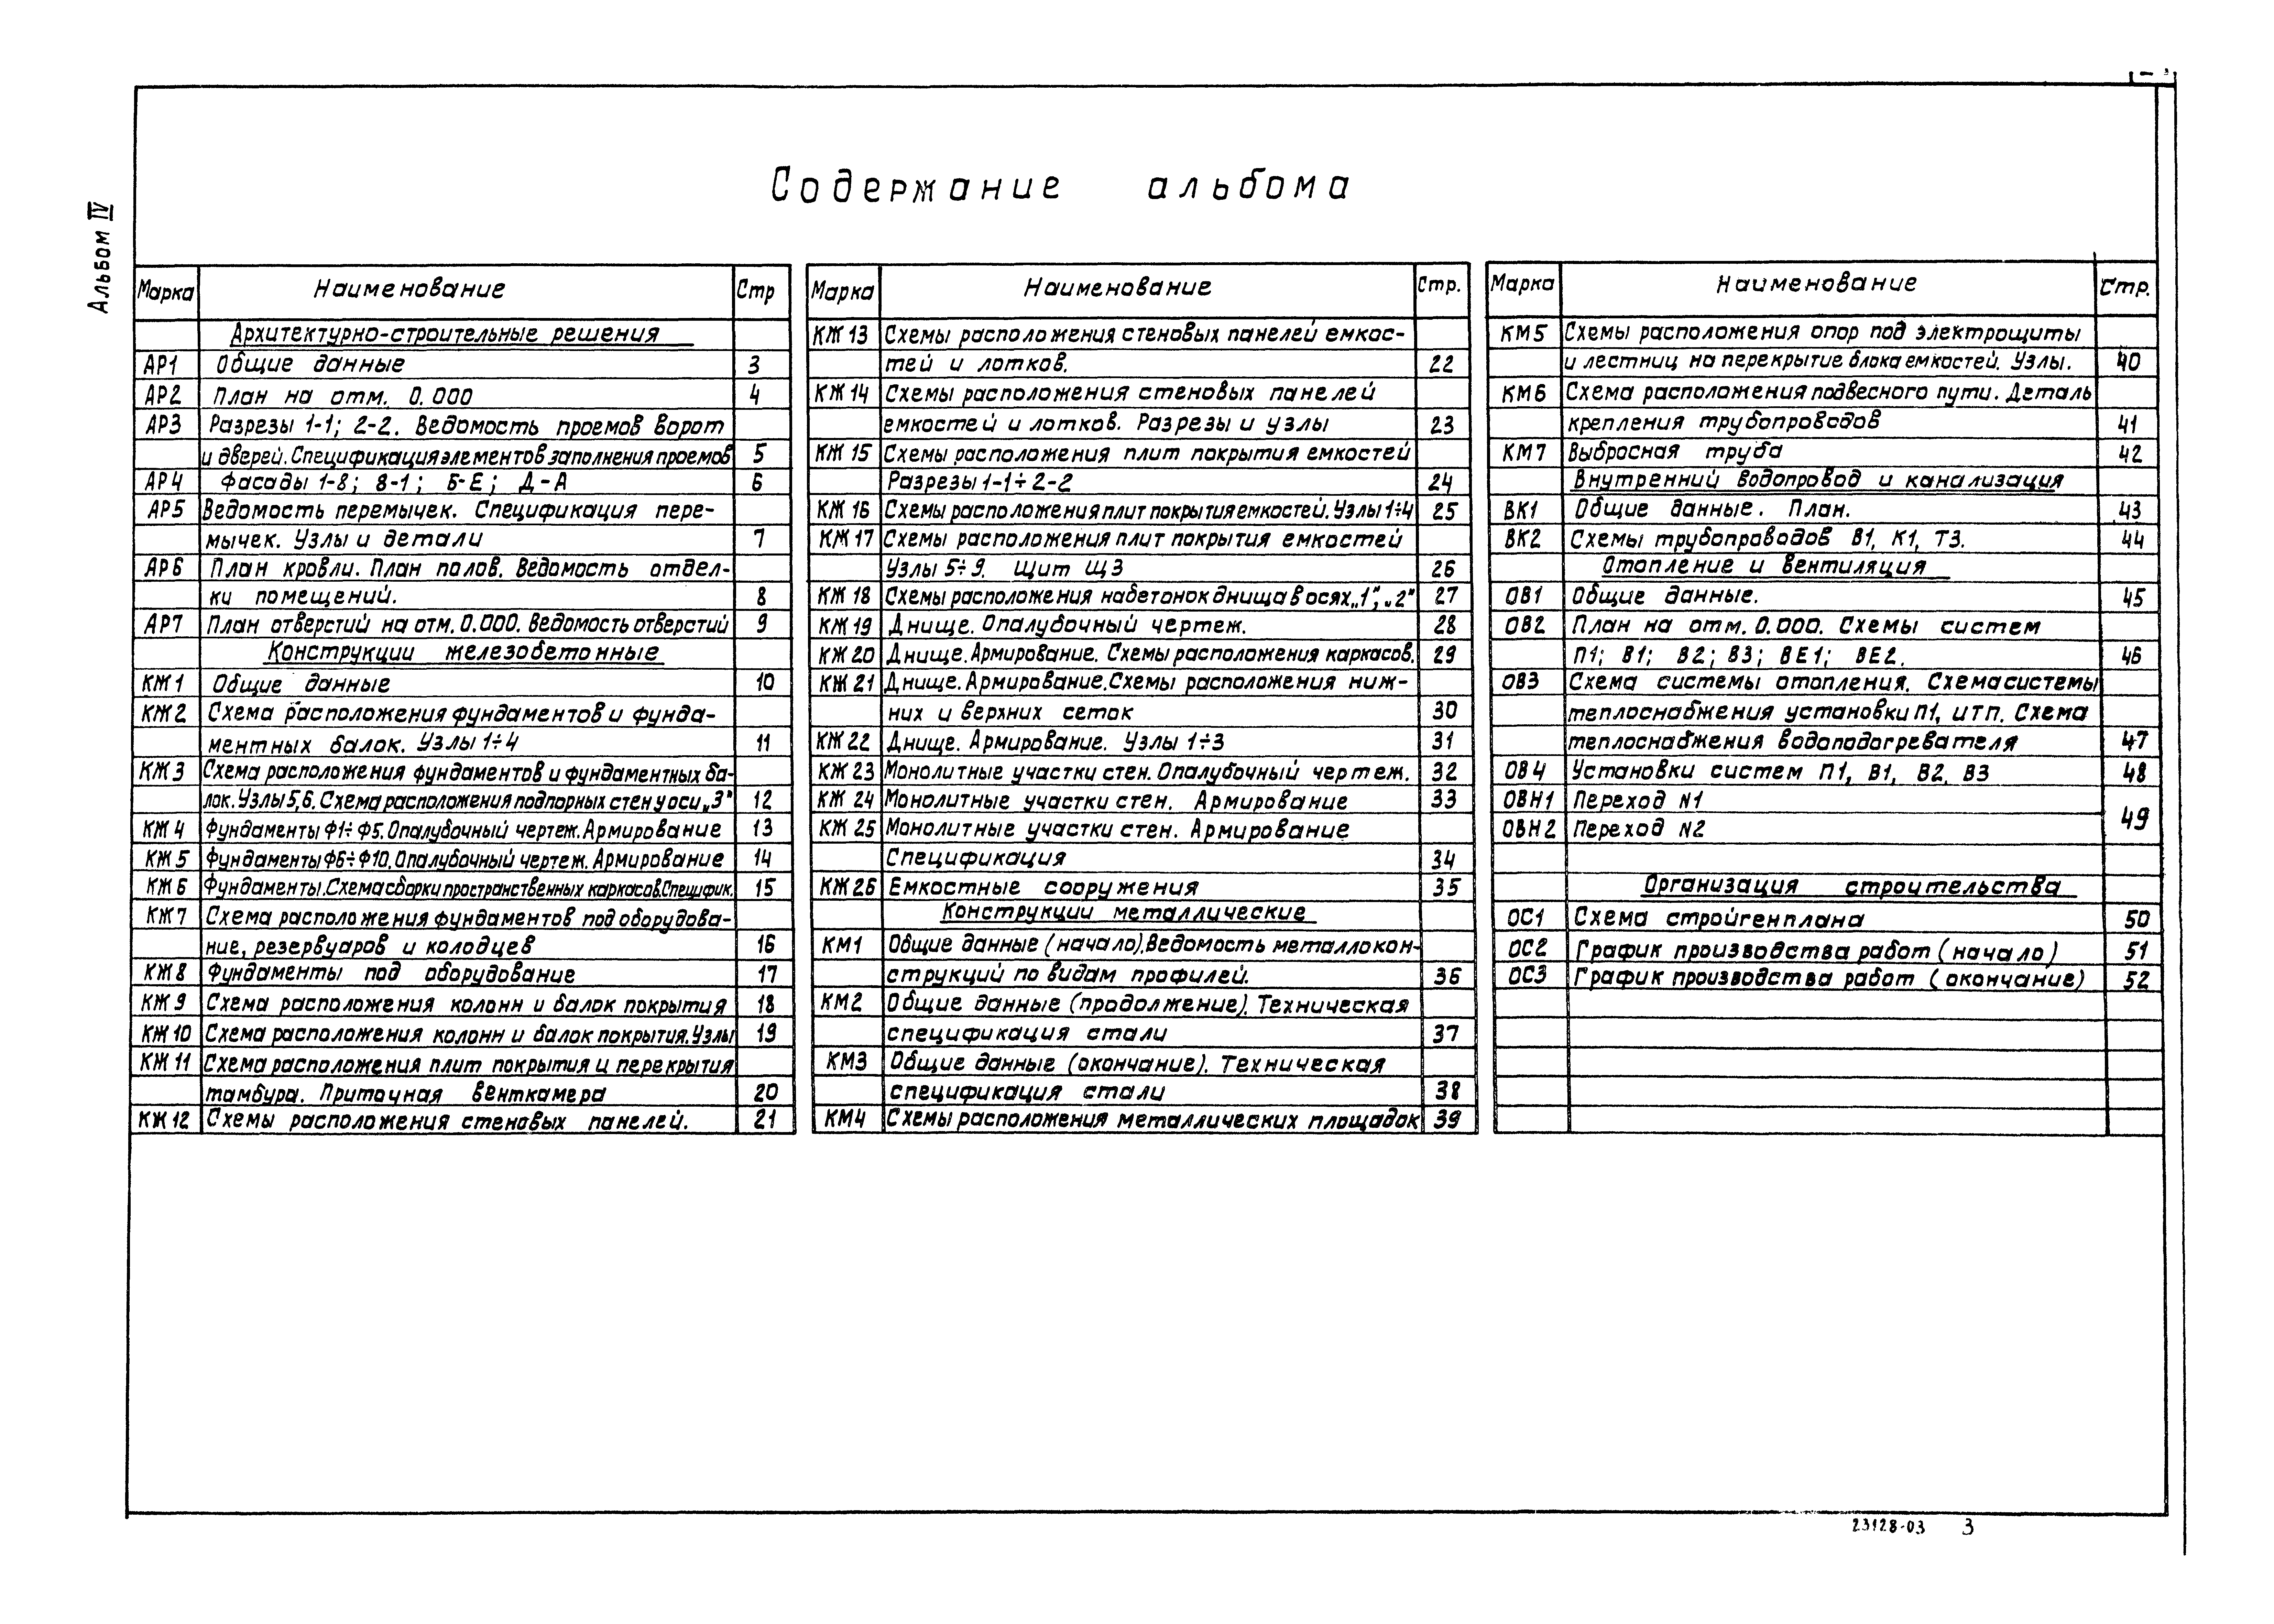 Альбом IV
Содержание альбома
Марка Наименование Стр
Архитектурно-строительные решения
АР1 Общие данные 3
АР2 План на отм. 0.000 4
АР3 Разрезы 1-1; 2-2. Ведомость проемов ворот
и дверей. Спецификация элементов заполнения проемов 5
АР4 Фасады 1-8; 8-1; Б-Е; Д-А 6
АР5 Ведомость перемычек. Спецификация пере-
мычек. Узлы и детали 7
АР6 План кровли. План полов. Ведомость отдел-
ки помещений. 8
АР7 План отверстий на отм. 0.000. Ведомость отверстий 9
Конструкции железобетонные
КЖ1 Общие данные 10
КЖ2 Схема расположения фундаментов и фунда-
ментных балок. Узлы 1÷4 11
КЖ3 Схема расположения фундаментов и фундаментных ба-
лок. Узлы 5,6. Схема расположения подпорных стен у оси „3" 12
КЖ4 Фундаменты Ф1÷Ф5. Опалубочный чертеж. Армирование 13
КЖ5 Фундаменты Ф6÷Ф10. Опалубочный чертеж. Армирование 14
КЖ6 Фундаменты. Схема сборки пространственных каркасов. Специфик. 15
КЖ7 Схема расположения фундаментов под оборудова-
ние, резервуаров и колодцев 16
КЖ8 Фундаменты под оборудование 17
КЖ9 Схема расположения колонн и балок покрытия 18
КЖ10 Схема расположения колонн и балок покрытия. Узлы 19
КЖ11 Схема расположения плит покрытия и перекрытия
тамбура. Приточная венткамера 20
КЖ12 Схемы расположения стеновых панелей. 21
Марка Наименование Стр.
КЖ13 Схемы расположения стеновых панелей емкос-
тей и лотков. 22
КЖ14 Схемы расположения стеновых панелей
емкостей и лотков. Разрезы и узлы 23
КЖ15 Схемы расположения плит покрытия емкостей
Разрезы 1-1÷2-2 24
КЖ16 Схемы расположения плит покрытия емкостей. Узлы 1÷4 25
КЖ17 Схемы расположения плит покрытия емкостей
Узлы 5÷9. Щит Щ3 26
КЖ18 Схемы расположения набетонок днища в осях „1", „2" 27
КЖ19 Днище. Опалубочный чертеж. 28
КЖ20 Днище. Армирование. Схемы расположения каркасов. 29
КЖ21 Днище. Армирование. Схемы расположения ниж-
них и верхних сеток 30
КЖ22 Днище. Армирование. Узлы 1÷3 31
КЖ23 Монолитные участки стен. Опалубочный чертеж. 32
КЖ24 Монолитные участки стен. Армирование 33
КЖ25 Монолитные участки стен. Армирование
Спецификация 34
КЖ26 Емкостные сооружения 35
Конструкции металлические
КМ1 Общие данные (начало). Ведомость металлокон-
струкций по видам профилей. 36
КМ2 Общие данные (продолжение). Техническая
спецификация стали 37
КМ3 Общие данные (окончание). Техническая
спецификация стали 38
КМ4 Схемы расположения металлических площадок 39
Марка Наименование Стр.
КМ5 Схемы расположения опор под электрощиты
и лестниц на перекрытие блока емкостей. Узлы. 40
КМ6 Схема расположения подвесного пути. Деталь
крепления трубопроводов 41
КМ7 Выбросная труба 42
Внутренний водопровод и канализация
ВК1 Общие данные. План. 43
ВК2 Схемы трубопроводов В1, К1, Т3. 44
Отопление и вентиляция
ОВ1 Общие данные. 45
ОВ2 План на отм. 0.000. Схемы систем
П1; В1; В2; В3; ВЕ1; ВЕ2. 46
ОВ3 Схема системы отопления. Схема системы
теплоснабжения установки П1, ИТП. Схема
теплоснабжения водоподогревателя 47
ОВ4 Установки систем П1, В1, В2, В3 48
ОВН1 Переход N1
49
ОВН2 Переход N2
Организация строительства
ОС1 Схема стройгенплана 50
ОС2 График производства работ (начало) 51
ОС3 График производства работ (окончание) 52
23128-03 3